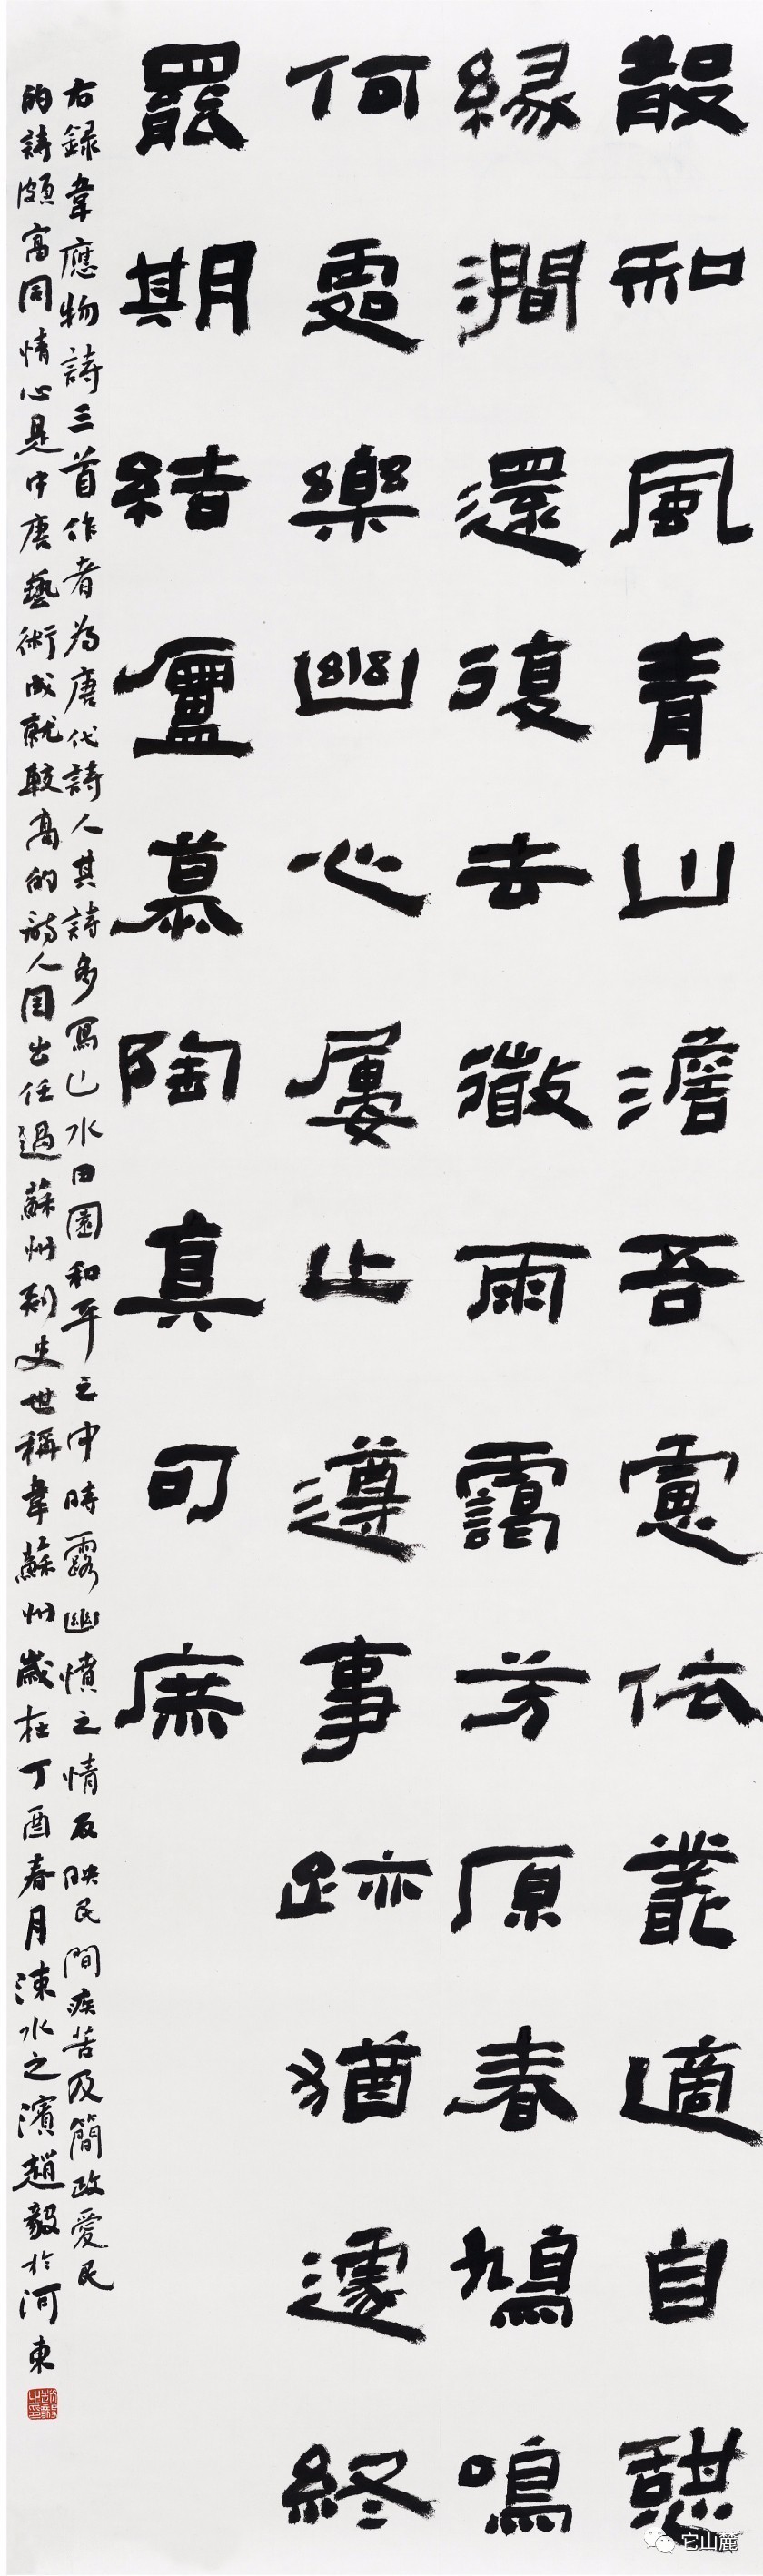 散和風青山澹吾慮依叢適自憇
緣澗還復去微雨靄芳原春鳩鳴
何處樂幽心屢止遵事跡猶遽終
罷期結廬慕陶真可庶
右錄韋應物詩三首作者為唐代詩人其詩多寫山水田園和平之中時露幽憤之情反映民間疾苦及簡政愛民
的詩頗富同情心是中唐藝術成就較高的詩人因出任過蘇州刺史世稱韋蘇州歲在丁酉春月涑水之濱趙毅於河東
趙毅之印
它山麓